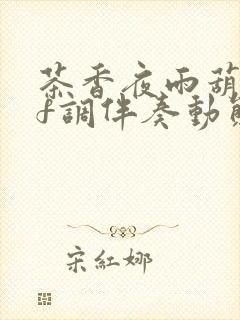 茶香夜雨葫
f調伴奏動
宋紅娜